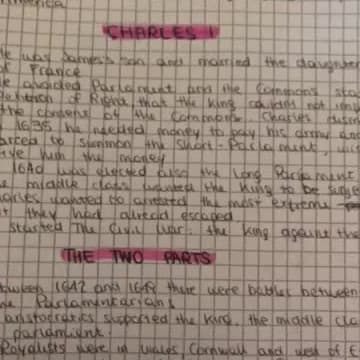 America
CHARLES I
He was James's son and married the daughter
of France
He avoided Parlament and the Commons
Petition of Rights, that the King couldn't not
the consent of the Commons. Charles
1635 he needed money to pay his army
to summon the Short-Parlament,
give him the money
1640 was elected also the Long Parlament
middle class wanted the King to be
wanted to arrested the most extreme
they had already escaped
started The Civil War: the King against the
THE TWO PARTS
between 1642 and there were battles between
the Parlamentarians
aristocratics supported the King, the middle
parlament.
Royalists were in Wales, Cornwall and west of